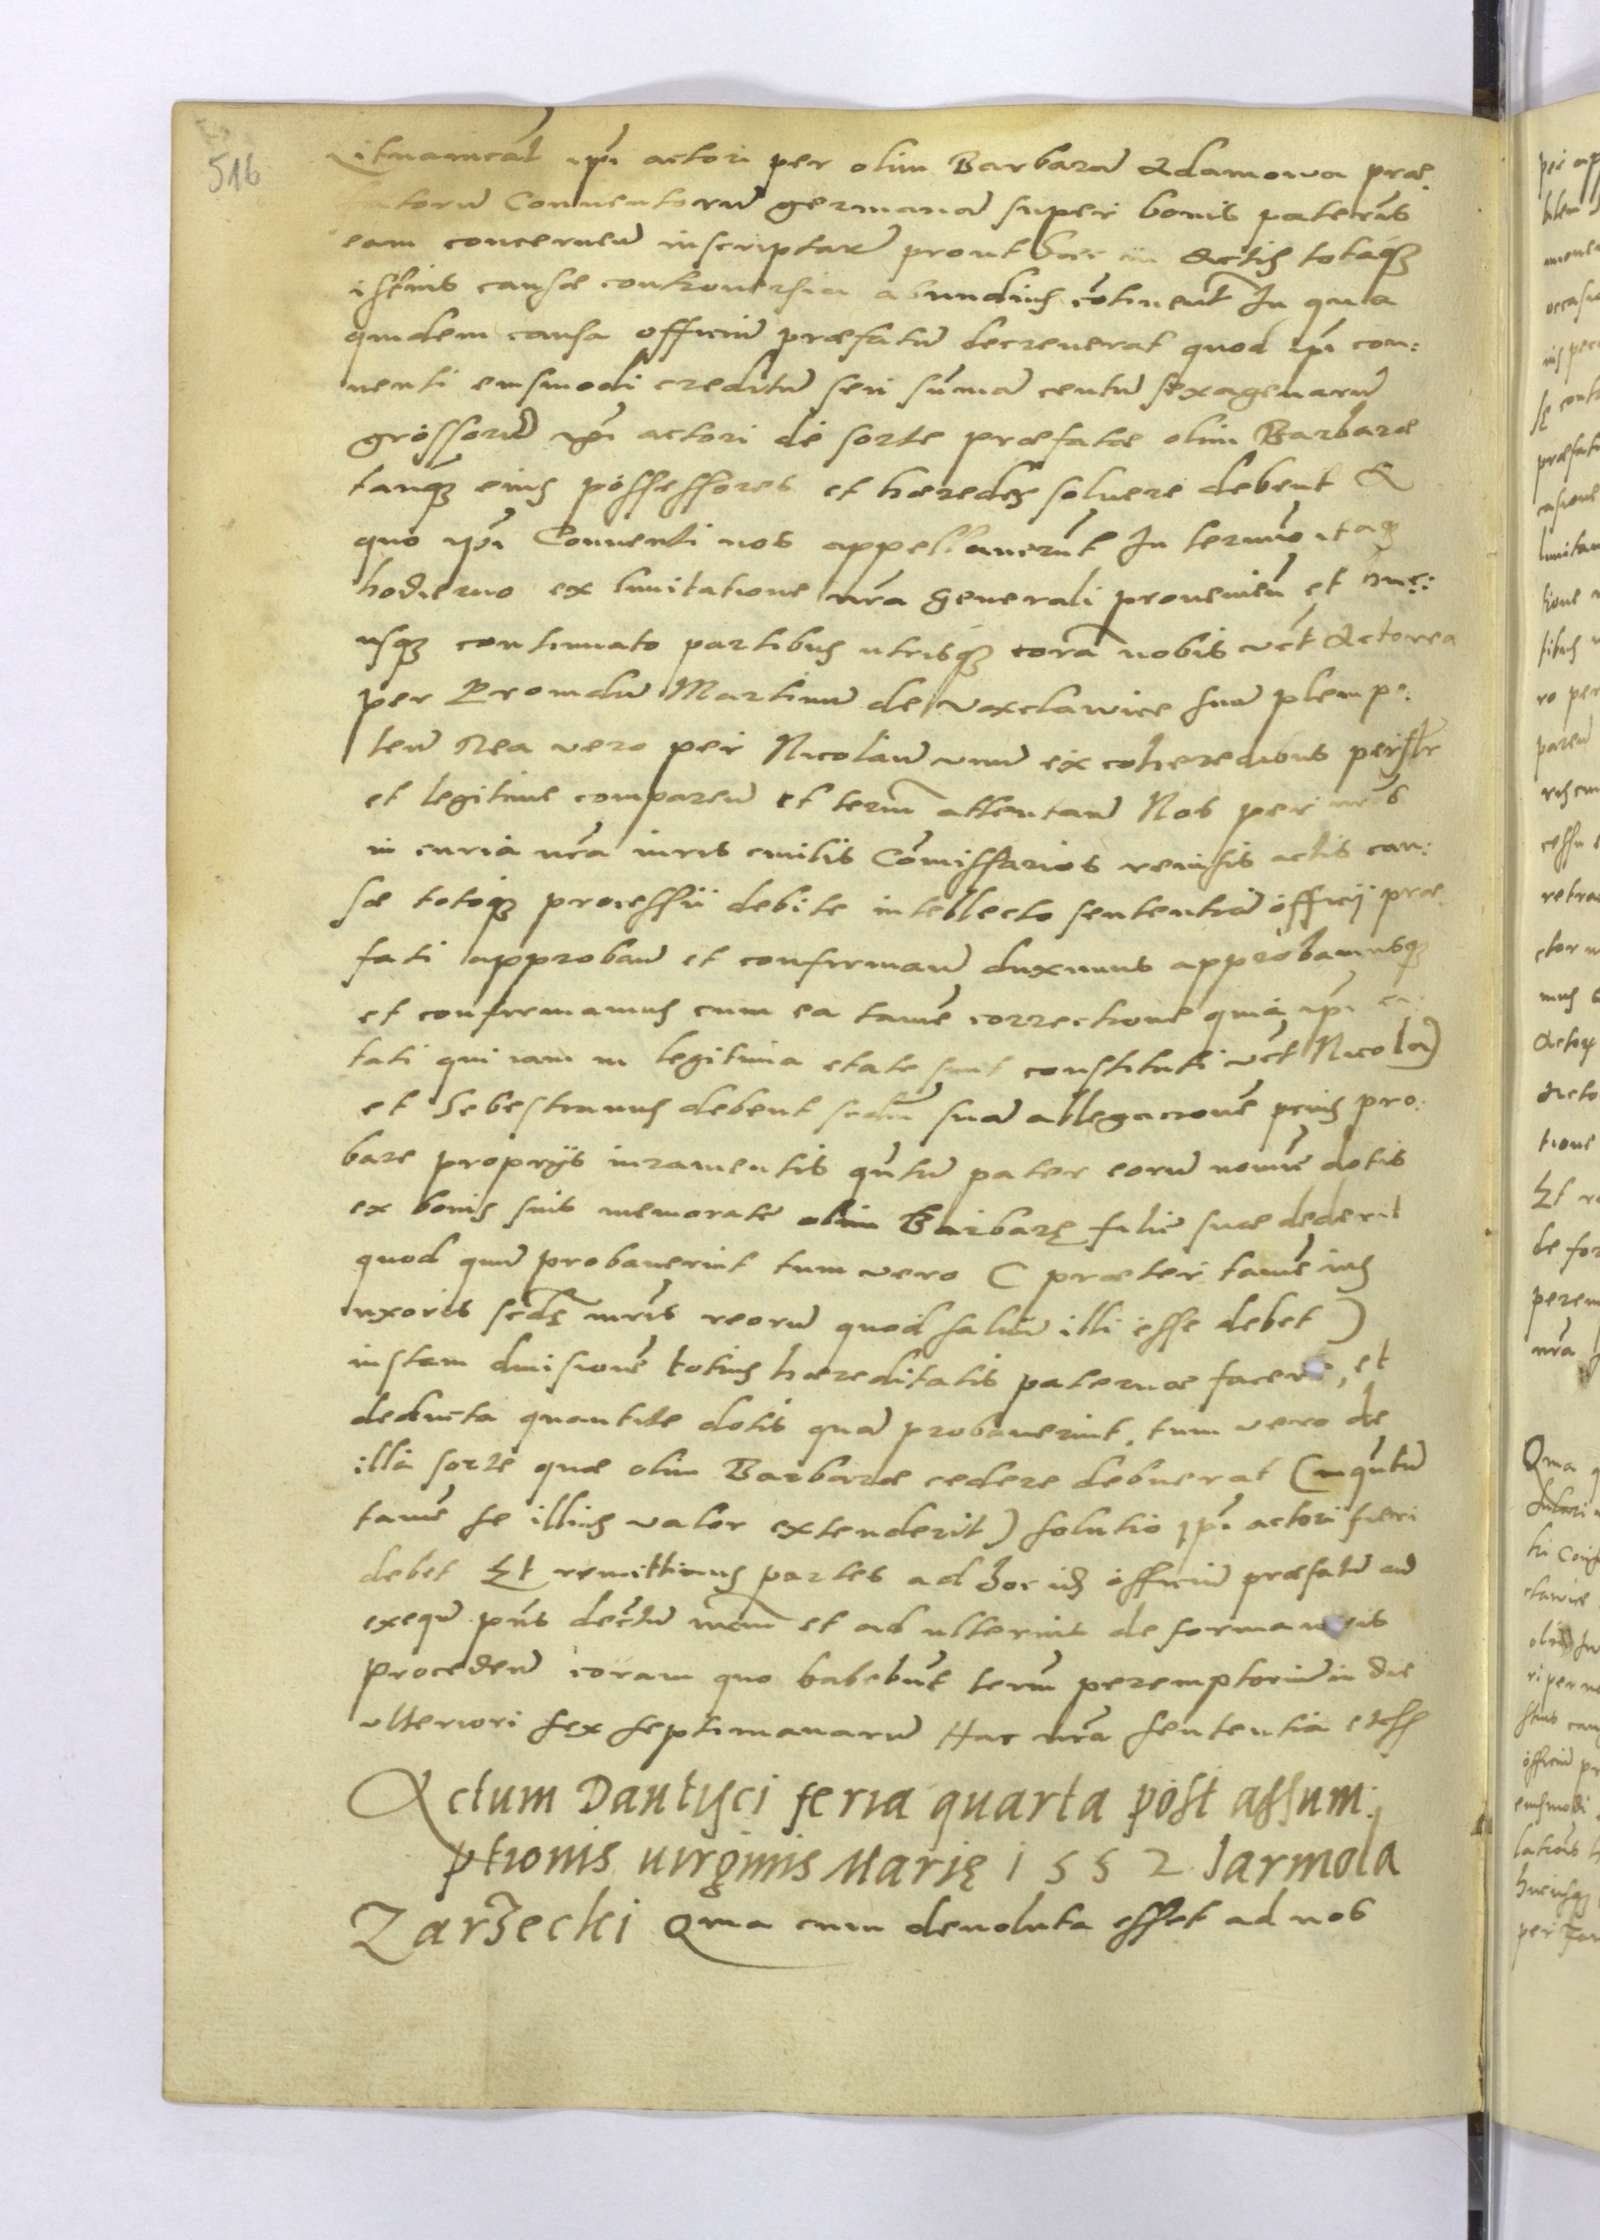 516
Lituanical ipi actori per olim Barbarā Adamowa præ:
fatorū Conuentorū germanā super bonis paternis
eam concernen inscriptar prout hæc in Actis totaq3
istius causæ controuersia abundius cōtinent In qua
quidem causa officiū præfatū decreuerat quod ipi con:
uenti eiusmodi creditū seu sūmā centū sexagenarū
grossorū ipi actori de sorte præfatæ olim Barbaræ
tanq3 eius possessores et hæredes soluere debent A
quo ipi Conuenti nos appellauerūt In termīo itaq3
hodierno ex limitatione nrā generali prouenien et huc:
usq3 continuato partibus utrisq3 corā nobis vct Actorea
per Promdū Martinū de Waxclawice suū plenipo:
ten Rea vero per Nicolaū vnū ex coheredibus personlr
et legitime comparen et termī attentan Nos per nros
in curia nrā iuris ciuilis Cōmissarios reuisis actis cau:
sæ totoq3 processu debite intellecto sententiā officij præ
fati approban et confirman duximus approbamusq3
et confirmamus cum ea tamē correctione quia ipi ci:
tati qui iam in legitima etate sunt constituti vct Nicola9
et Sebestianus debent scdm suā allegacionē prius pro:
bare proprijs iuramentis qūtū pater eorū noīe dotis
ex bonis suis memorate olim Barbarę filie suæ dederit
quod qum probauerint tum vero ( præter tamē ius
uxoris scdę nris reorū quod saluū illi esse debet )
iustam diuisionē totius hæreditatis paternæ facere, et
deducta quantite dotis quā probauerint, tum vero de
illa sorte quæ olim Barbaræ cedere debuerat ( inqūtū
tamē se illius valor extenderit ) solutio ipi actori fieri
debet Et remittimus partes ad hoc idē officiū præfatū ad
exequū pns dectū nrm et ad ulterius de forma iuris
proceden coram quo habebūt termī peremptoriū in die
ulteriori sex septimanarū Hac nrā sententia etcss
Actum Dantisci feria quarta post assum:
ptionis uirginis Marię 1552 Jarmola
Zarzecki Qma cum deuoluta esset ad nos